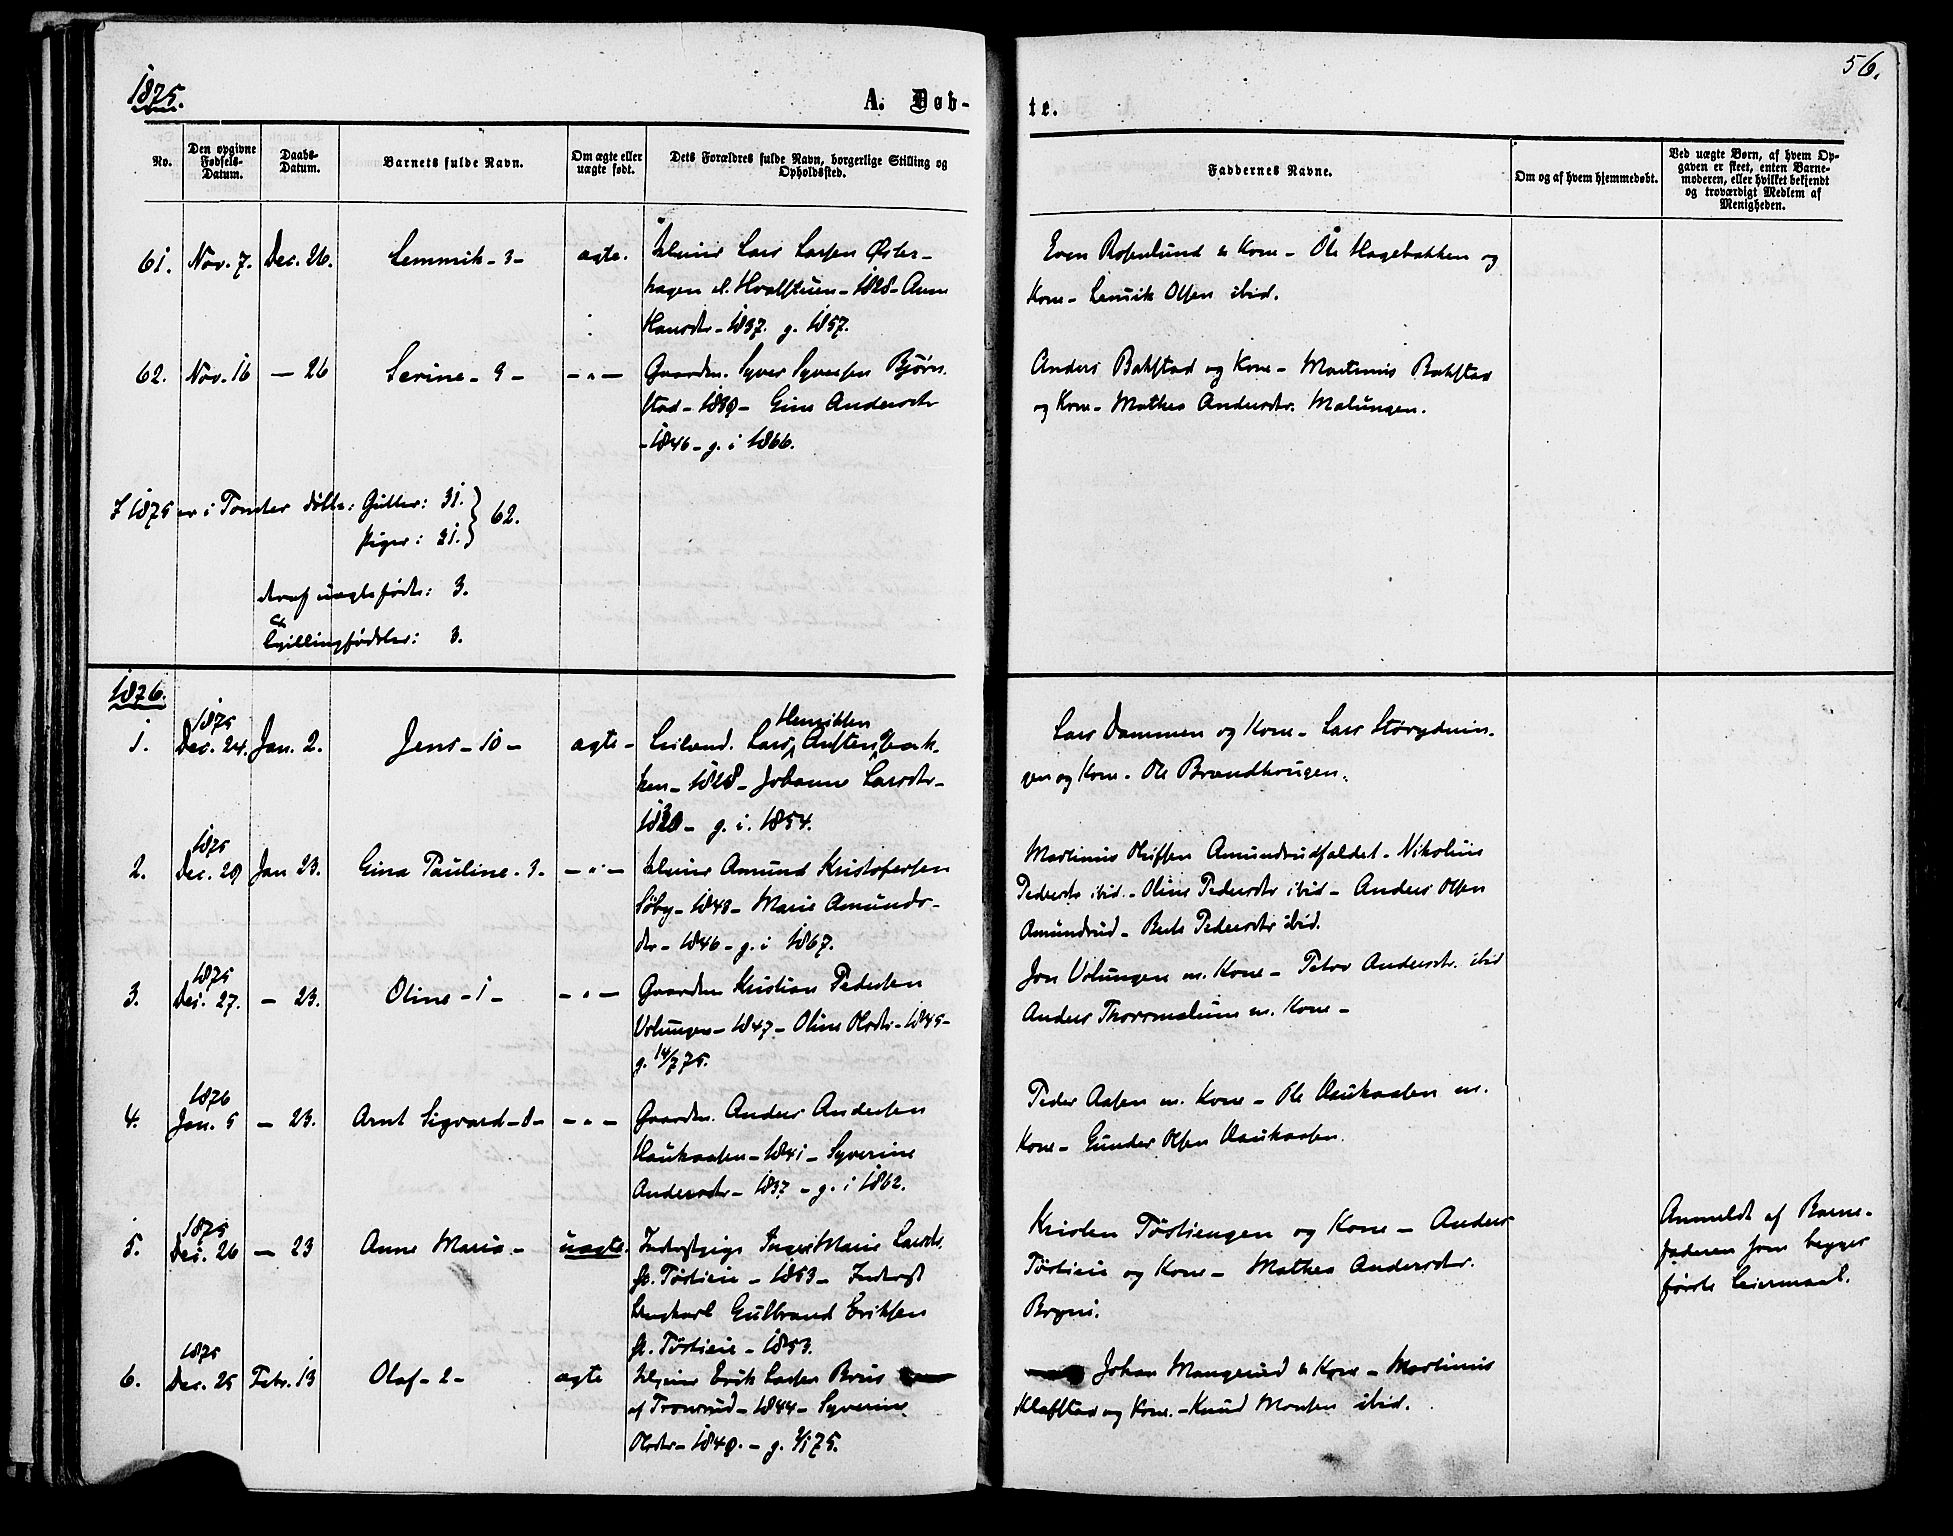 1875.
A. Døb-
te.
56.
No.
Den opgivne Fødsels-Datum.
Daabs-Datum.
Barnets fulde Navn.
Om ægte eller uægte født.
Dets Forældres fulde Navn, borgerlige Stilling og Opholdssted.
Faddernes Navne.
Om og af hvem hjemmedøbt.
Ved uægte Børn, af hvem Opgaven er skeet, enten Barnemoderen, eller hvilket bekjendt og troværdigt Medlem af Menigheden.
61. Nov. 7. Dec. 26. Lemmik - 3 - ægte.
Lars Larsen Øster-
hagen - 1828 - Anne
Hansdtr - 1837. g. 1857.
Even Rosenlund & Kone - Ole Hagebakken og
Kone - Olsen ibid.
62. Nov. 16 - 26 Serine - 9 - - " -
Gaardm. Syver Syversen Bjørn-
stad - - Gine Andersdtr
- 1846 - g. i 1866.
Anders Bakstad og Kone - Martinius Bakstad
og Kone - Mathea Andersdtr. Malungen.
I 1875 er i Tomter døbte: Gutter: 31. } 62.
Piger: 31.
deraf uægtefødte: 3.
Tvillingfødsler: 3.
1876.
1. 1875 Dec. 24. Jan. 2. Jens - 10 - ægte -
Henriksen
Lars
- 1828 - Johanne Larsdtr -
- g. i. 1854.
Lars Dammen og Kone - Lars
gen og Kone - Ole Brændhougen.
2. 1875 Dec. 29 Jan 23. Gina Pauline - 3. - " -
Amund Kristofersen
Søby - 1843 - Marie Amunds-
dtr - 1846 - g. i 1867.
Martinius Amundrudfaldet - Nikoline
Pedersdtr ibid. - Oline Pedersdtr ibid - Anders Olsen
Amundrud - Berte Pedersdtr ibid.
3. 1875 Dec. 27. - 23. Oline - 1 - - " -
Gaardm Kristian Pedersen
Volungen - 1847 - Oline Olsdtr - 1845 -
g. 14/7 75.
Jon Volungen m. Kone - Andersdtr. ibid
Anders m. Kone -
4. 1876 Jan. 5 - 23. Arnt Sigvard - 8 - - " -
Gaardm. Anders Andersen
Haukaasen - 1841 - Syverine
Andersdtr - 1837 - g. i 1862.
Peder Aasen m. Kone - Ole Haukaasen m.
Kone - Gunder Olsen Haukaasen.
5. 1875 Dec. 26 - 23 Anne Maria - uægte.
Inderstpige Inger Marie Larsdtr.
p. Tøstieie - 1853 - Inderst
Ungkarl Gulbrand Eriksen
p. Tøstieie - 1853.
Kristen Tøstiengen og Kone - Anders
Tøstieie og Kone - Mathea Andersdtr.
Bryni.
Anmeldt af Barne-
faderen som begges
første Leiermaal.
6. 1875 Dec. 25 Febr. 13 Olaf - 2 - ægte
Erik Larsen Brus
af Tronsrud - 1844 - Syverine
Olsdtr - - g. 75.
Johan Mangerud & Kone - Martinius
Klafstad og Kone. - Knud Monsen ibid.